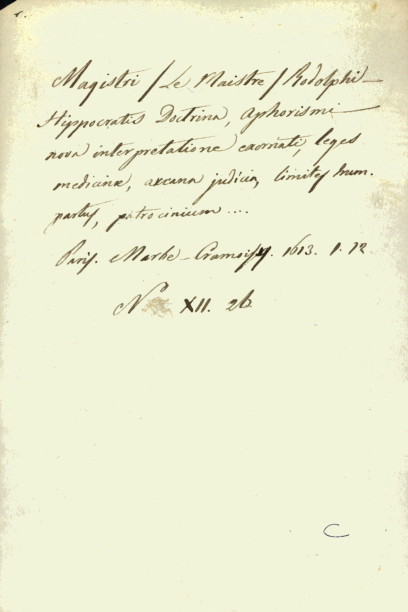 Magistri / Le Maistre / Rodolphi
Hippocratis Doctrina, Aphorismi
nova interpretatione exornati, leges
medicinæ, arcana judicia, limites hum.
partus, patrocinium ....
Paris. Marbe-Cramoisy. 1613. 1. 12
N° XII. 26
C